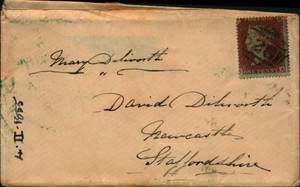 Mary Dilworth
David Dilworth
Newcastle
Staffordshire